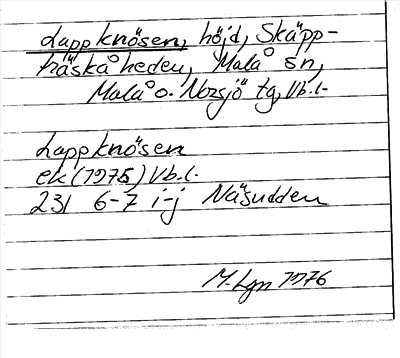 Lappknösen, höjd, Skäpp-
träskåheden, Malå sn,
Malå o. Norsjö tg, Vb.l.
Lappknösen
ek (1975) Vb.l.
231 6-7 i-j Näsudden
M. Lgn 1976